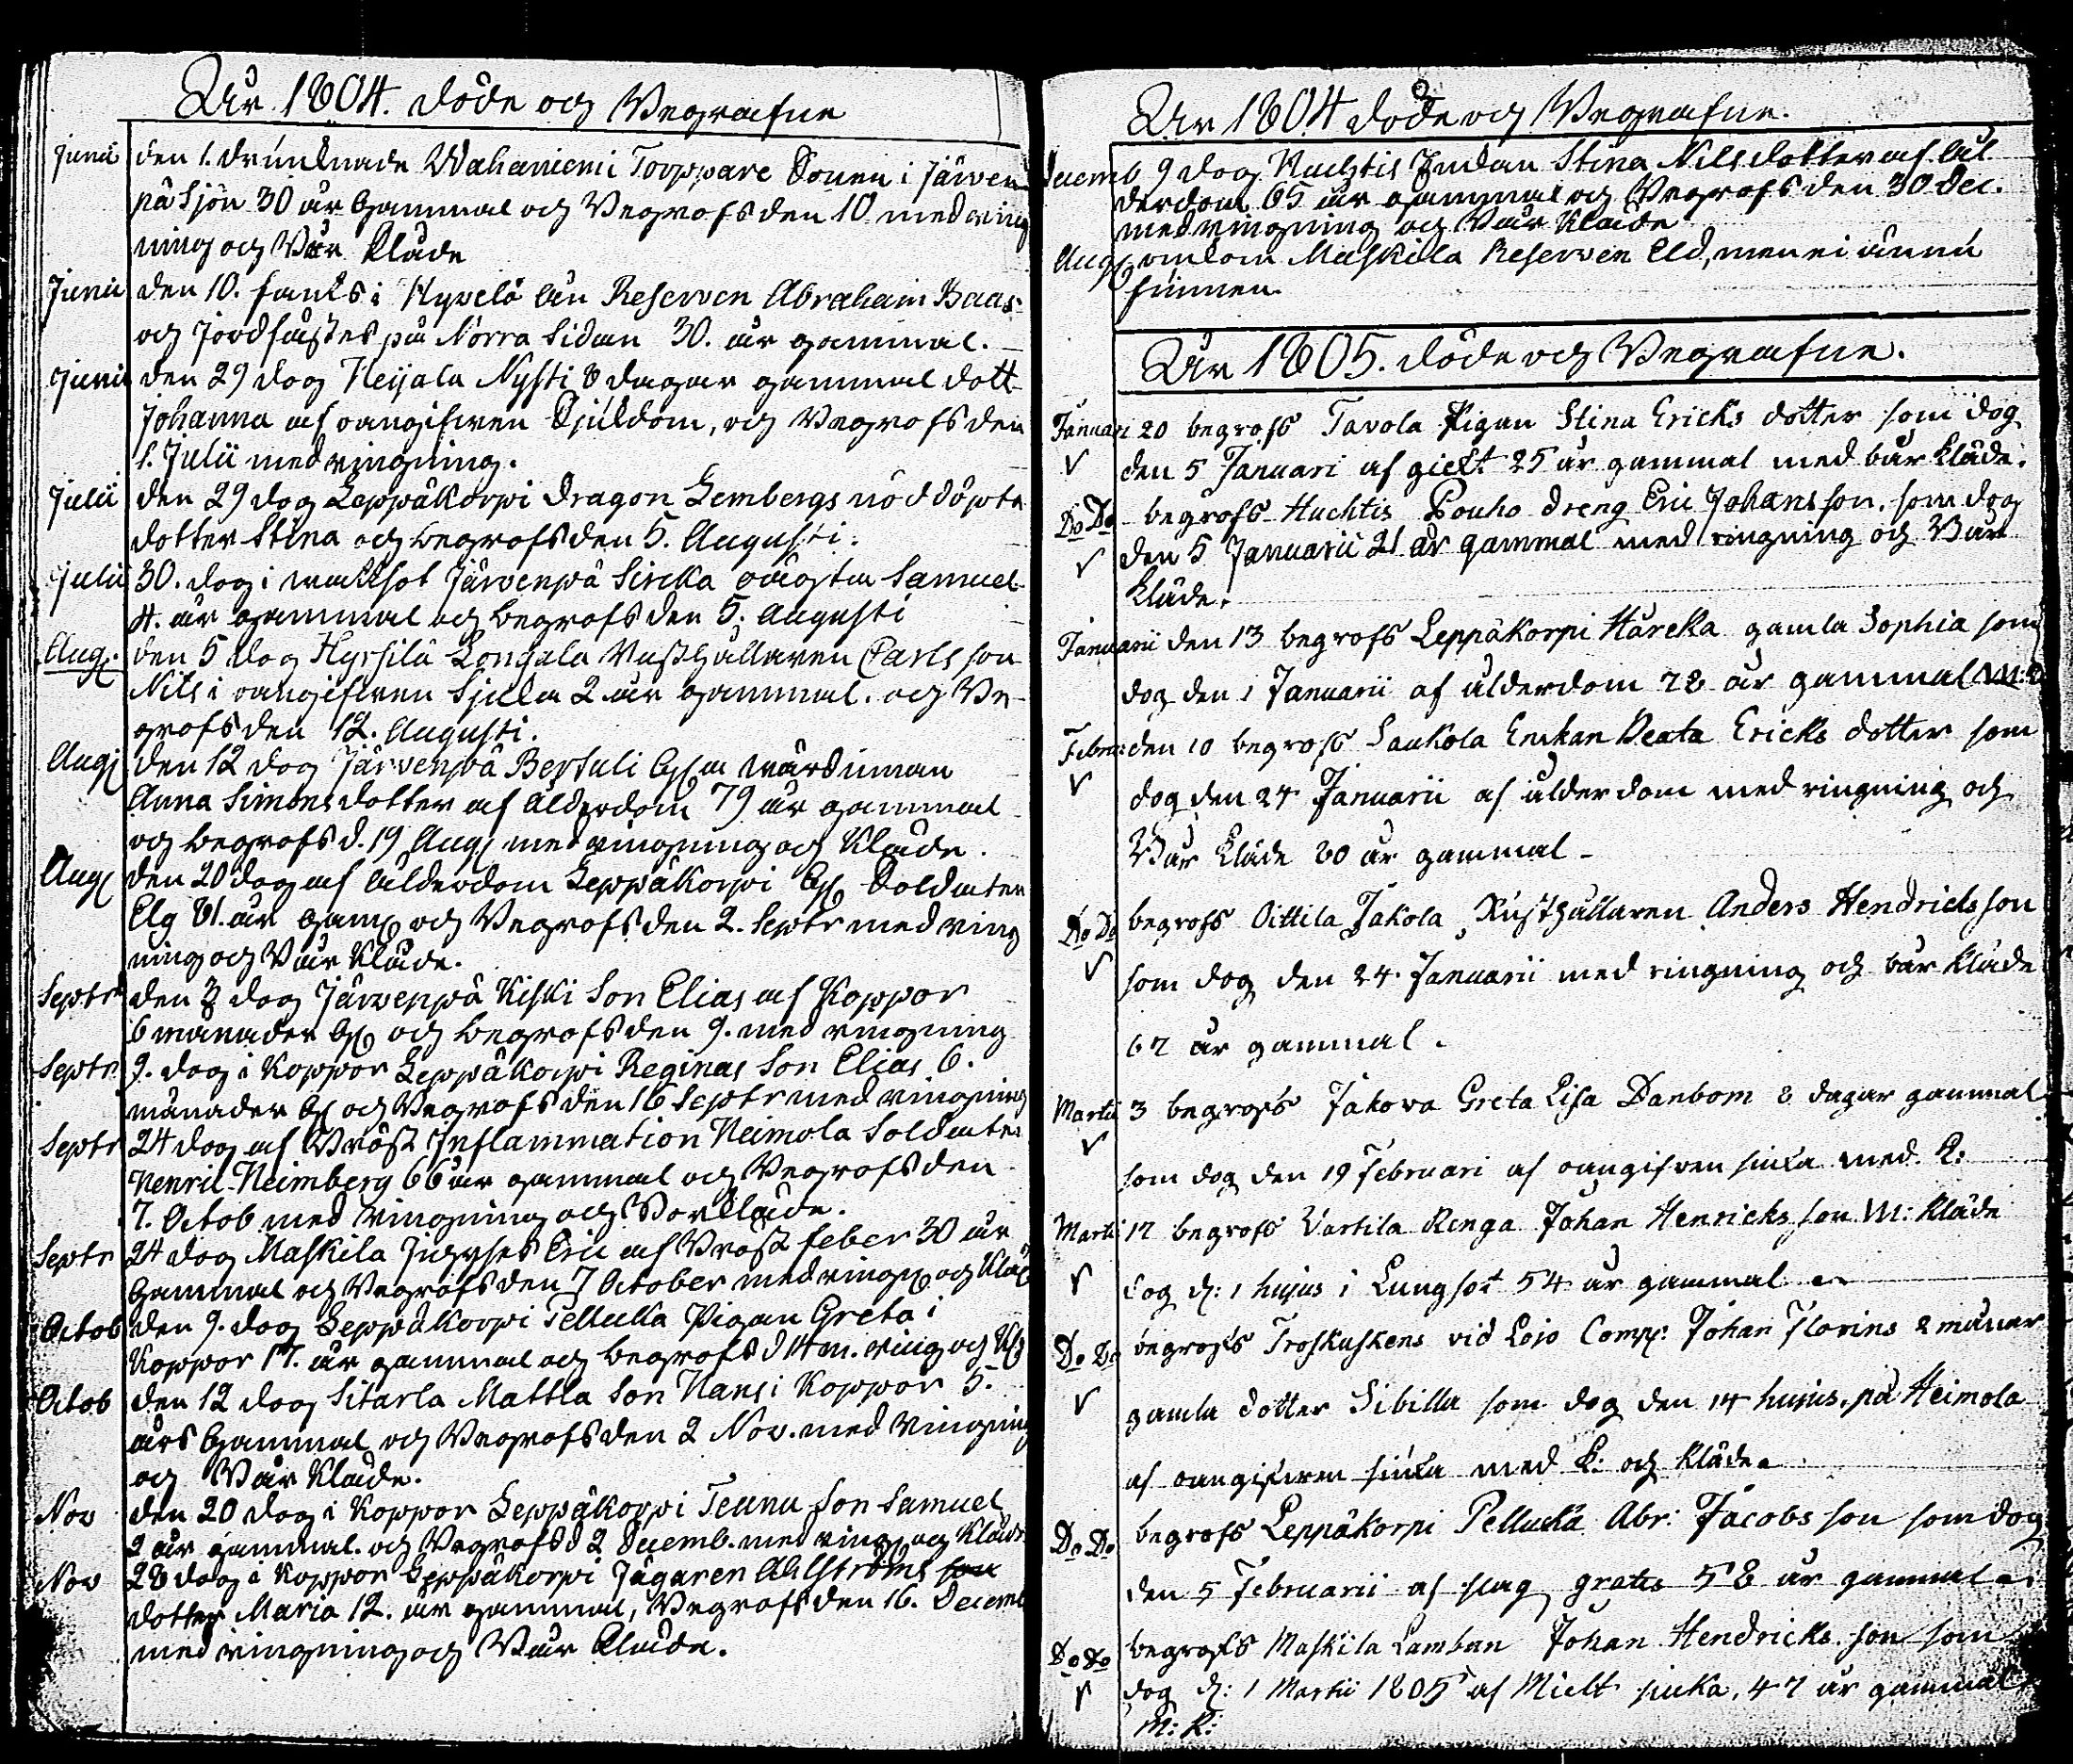 År 1804. döde och Begrafne
Junii den 1. drunknade Wahaniemi Torppare Sonen i Järven
på Sjön 30 år Gammal och Begrofs den 10 med ring
ning och Bår kläde
Junii den 10. fants i Hyvelä ån Reserven Abraham Baas
och Jordfästes på Norra Sidan 30. år gammal.
Junii den 29 dog Heijala Nysti 8 dagar gammal dott
Johanna af oangifven Sjukdom, och Begrofs den
1. Julii med ringning.
Julii den 29 dog Leppäkorpi Dragon Lembergs nöddöpte
dotter Stina och begrofs den 5. Augusti.
Julii 30. dog i Järvenpä Sircka Samuel
4. år gammal och begrofs den 5. Augusti
Aug. den 5 dog Hyrsilä Rusthållaren Carls son
Nils i oangifven Sjuka 2 år gammal. och Be-
grofs den 12. Augusti.
Aug den 12 dog Järvenpä Bertuli Gamla wärdinnan
Anna Simonsdotter af ålderdom 79 år gammal
och begrofs d. 19 Aug med ringning och Kläde.
Aug den 20 dog af ålderdom Leppäkorpi Soldaten
Elg 81. år gam och Begrofs den 2. Septr med ring
ning och Bår Kläde.
Septr den 3 dog Järvenpä Kiski Son Elias af Koppor
6 månader G och begrofs den 9. med ringning
Septr 9. dog i Koppor Leppäkorpi Reginas Son Elias 6.
månader G och Begrofs den 16 Septr med ringning
Septr 24 dog af Bröst Inflammation Heimola Soldaten
Henric Heimberg 66 år gammal och Begrofs den
7. Octob med ringning och Bår kläde.
Septr 24 dog Maskila Eric af Bröst feber 30 år
Gammal och Begrofs den 7 October med ring och Kläd
Octob den 9. dog Leppäkorpi Pellukka Pigan Greta i
Koppor 17. år gammal och begrofs d 14 m. ring och Kl
Octob den 12 dog Sitarla Mattla Son Hans i Koppor 5.
års Gammal och Begrofs den 2 Nov. med Ringning
och Bår Kläde.
Nov den 20 dog i Koppor Leppäkorpi Teunu Son Samuel
2 år gammal. och Begrofs d 2 Decemb. med ring och Kläde
Nov 28 dog i Koppor Leppäkorpi Jägaren Ahlströms son
dotter Maria 12. år gammal, Begrofs den 16. Decemb
med ringning och Bår Kläde.
År 1804 döde och Begrafne.
Decemb 9 dog Huchtis Enkan Stina Nilsdotter af ål
derdom 65 år gammal och Begrofs den 30 Dec.
med ringning och Bår Kläde
Aug omkom Maskila Reserven Eld, men ei ännu
finnen.
År 1805. döde och Begrafne.
Januari 20 begrofs Tavola Pigan Stina Ericks dotter som dog
den 5 Januari af gickt 25 år gammal med bår kläde.
Do Do begrofs Huchtis Pouho dreng Eric Johansson. som dog
den 5 Januarii 21 år gammal med ringning och Bår
kläde.
Januarii den 13 begrofs Leppäkorpi Härcka gamla Sophia som
dog den 1 Januarii af ålderdom 78 år gammal
Febru den 10 begrofs Saukola Enckan Beata Ericks dotter som
dog den 24 Januarii af ålderdom med ringning och
Bår kläde 80 år gammal.
Do Do begrofs Oittila Jakola Rusthållaren Anders Hendricksson
som dog den 24. Januarii med ringning och bår kläde
67 år gammal.
Martii 3 begrofs Jakova Greta Lisa Danbom 8 dagar gammal
som dog den 19 Februari af oangifven siuka med. R.
Martii 17 begrofs Vartila Renga Johan Henricks son M: kläde
dog d: 1 hujus i Lungsot 54 år gammal
Do Do begrofs Troskuskens vid Lojo Comp: Johan Florins 2 månar
gamla dotter Sibilla som dog den 14 hujus. på Heimola
af oangifven siuka med R: och kläde.
Do Do begrofs Leppäkorpi Pelluckä Abr: Jacobs son som dog
den 5 Februarii af slag gratis 58 år gammal.
Do Do begrofs Maskila Lamban Johan Hendricks. son som
dog d: 1 Martii 1805 af Mielt siuka, 47 år gammal
M: R: